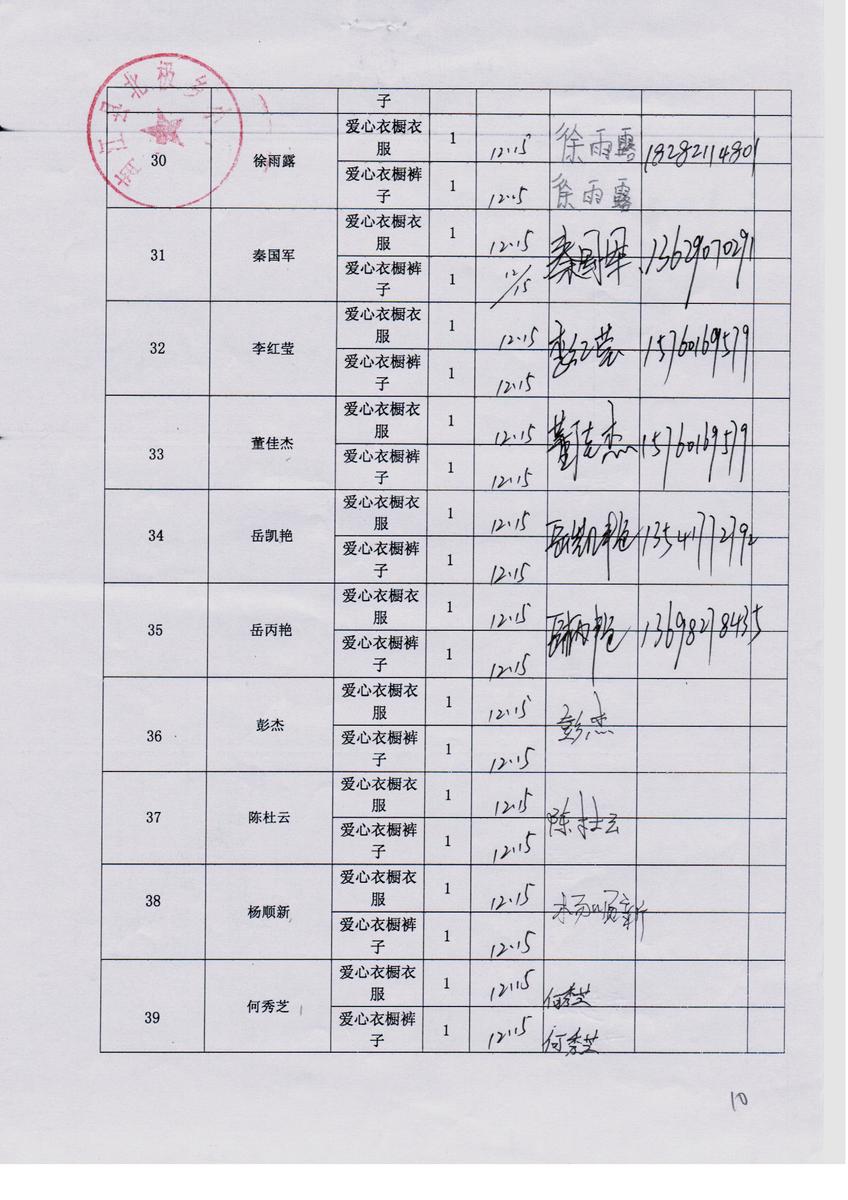 子
30 徐雨露 爱心衣橱衣服 1 12.15 徐雨露 18282114801
爱心衣橱裤子 1 12.15 徐雨露
31 秦国军 爱心衣橱衣服 1 12.15 秦国军 13629070291
爱心衣橱裤子 1 12/15
32 李红莹 爱心衣橱衣服 1 12.15 李红莹 15760169579
爱心衣橱裤子 1 12.15
33 董佳杰 爱心衣橱衣服 1 12.15 董佳杰 15760169579
爱心衣橱裤子 1 12.15
34 岳凯艳 爱心衣橱衣服 1 12.15 岳凯艳 13541772792
爱心衣橱裤子 1 12.15
35 岳丙艳 爱心衣橱衣服 1 12.15 岳丙艳 13698278435
爱心衣橱裤子 1 12.15
36 彭杰 爱心衣橱衣服 1 12.15 彭杰
爱心衣橱裤子 1 12.15
37 陈杜云 爱心衣橱衣服 1 12.15 陈杜云
爱心衣橱裤子 1 12.15
38 杨顺新 爱心衣橱衣服 1 12.15 杨顺新
爱心衣橱裤子 1 12.15
39 何秀芝 爱心衣橱衣服 1 12.15 何秀芝
爱心衣橱裤子 1 12.15 何秀芝
10